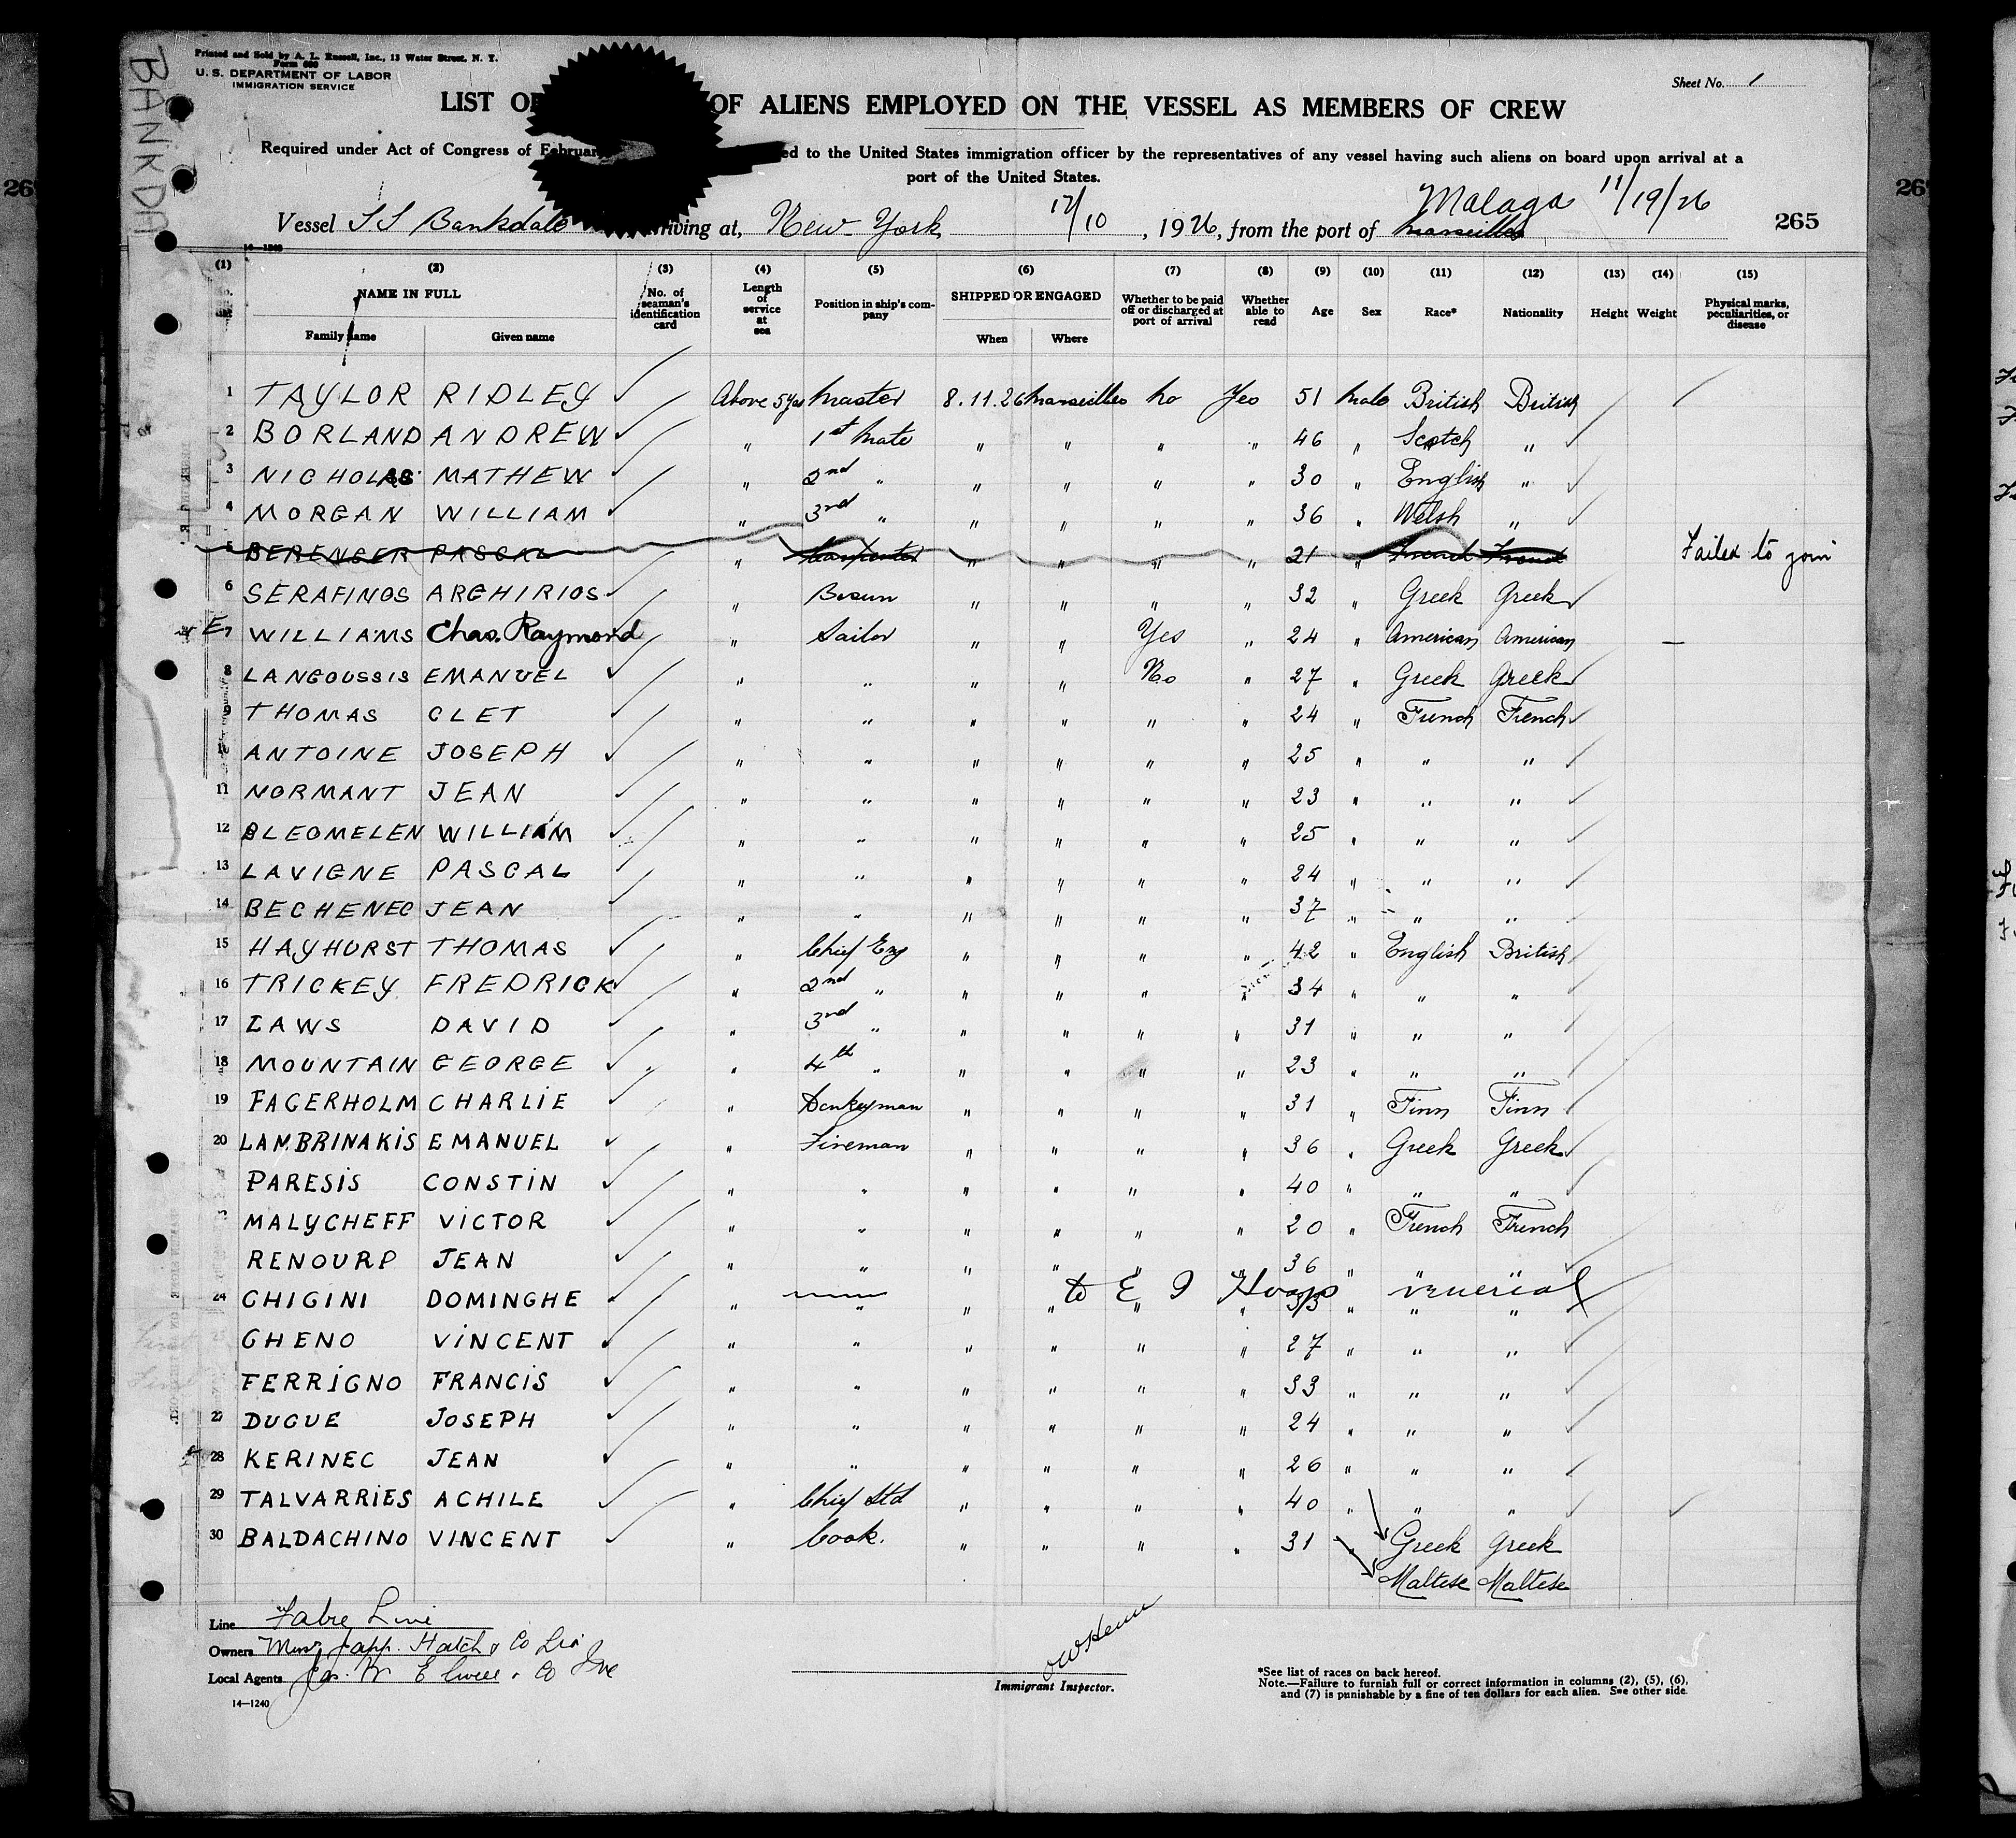 BANKDA
Printed and Sold by A. L. Russell, Inc., 13 Water Street, N. Y.
Form 680
U. S. DEPARTMENT OF LABOR
IMMIGRATION SERVICE
Sheet No. 1
LIST OF OF ALIENS EMPLOYED ON THE VESSEL AS MEMBERS OF CREW
Required under Act of Congress of February ed to the United States immigration officer by the representatives of any vessel having such aliens on board upon arrival at a
port of the United States.
Malaga 11/19/26
Vessel SS Bankdale arriving at, New York 12/10, 1926, from the port of Marseilles 265
(1) (2) (3) (4) (5) (6) (7) (8) (9) (10) (11) (12) (13) (14) (15)
NAME IN FULL
Family name Given name
No. of seaman's identification card
Length of service at sea
Position in ship's company
SHIPPED OR ENGAGED
When Where
Whether to be paid off or discharged at port of arrival
Whether able to read
Age Sex Race* Nationality Height Weight
Physical marks, peculiarities, or disease
1 TAYLOR RIDLEY Above 5 yrs Master 8.11.26 Marseilles No Yes 51 Male British British
2 BORLAND ANDREW " 1st Mate " " " " 46 " Scotch "
3 NICHOLAS MATHEW " 2nd " " " " " 30 " English "
4 MORGAN WILLIAM " 3rd " " " " " 36 " Welsh "
5 BERENGER PASCAL " Carpenter " " " " 21 " French French Failed to join
6 SERAFINOS ARGHIRIOS " Bosun " " " " 32 " Greek Greek
7 WILLIAMS Chas. Raymond " Sailor " " Yes " 24 " American American —
8 LANGOUSSIS EMANUEL " " " " No " 27 " Greek Greek
9 THOMAS CLET " " " " " " 24 " French French
ANTOINE JOSEPH " " " " " " 25 " " "
11 NORMANT JEAN " " " " " " 23 " " "
12 BLEOMELEN WILLIAM " " " " " " 25 " " "
13 LAVIGNE PASCAL " " " " " " 24 " " "
14 BECHENEC JEAN " " " " " " 37 " " "
15 HAYHURST THOMAS " Chief Eng " " " " 42 " English British
16 TRICKEY FREDRICK " 2nd " " " " " 34 " " "
17 LAWS DAVID " 3rd " " " " " 31 " " "
18 MOUNTAIN GEORGE " 4th " " " " " 23 " " "
19 FAGERHOLM CHARLIE " Donkeyman " " " " 31 " Finn Finn
20 LAMBRINAKIS EMANUEL " Fireman " " " " 36 " Greek Greek
PARESIS CONSTIN " " " " " " 40 " " "
MALYCHEFF VICTOR " " " " " " 20 " French French
RENOURP JEAN " " " " " " 36 " " "
to E I Hosp venereal
24 GHIGINI DOMINGHE " " " " " " 33 " " "
GHENO VINCENT " " " " " " 27 " " "
FERRIGNO FRANCIS " " " " " " 33 " " "
27 DUGUE JOSEPH " " " " " " 24 " " "
28 KERINEC JEAN " " " " " " 26 " " "
29 TALVARRIES ACHILE " Chief Std " " " " 40 " " "
30 BALDACHINO VINCENT " Cook. " " " " 31 " Greek Greek
Maltese Maltese
Line Fabre Line
Owners Hatch & Co
Local Agents Jas. W Elwell & Co Inc
14—1240
Immigrant Inspector.
*See list of races on back hereof.
Note.—Failure to furnish full or correct information in columns (2), (5), (6),
and (7) is punishable by a fine of ten dollars for each alien. See other side.